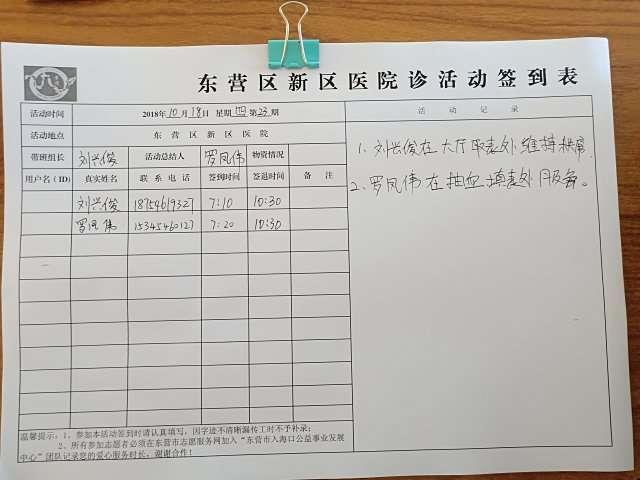 东营区新区医院诊活动签到表
活动时间 2018年10月18日 星期四第23期
活动记录
活动地点 东营区新区医院
带班组长 刘兴俊 活动总结人 罗凤伟 物资情况
用户名(ID) 真实姓名 联系电话 签到时间 签退时间 备注
刘兴俊 18754619327 7:10 10:30
罗凤伟 15345460127 7:20 10:30
1、刘兴俊在大厅取表处维持秩序
2、罗凤伟在抽血填表处服务。
温馨提示:1、参加本活动签到时请认真填写,因字迹不清晰漏传工时不予补录;
2、所有参加志愿者必须在东营市志愿服务网加入“东营市入海口公益事业发展
中心”团队记录您的爱心服务时长,谢谢合作!